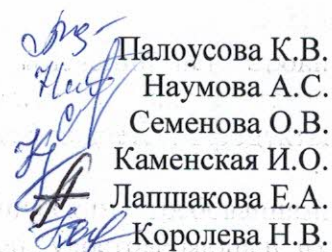 Палоусова К.В.
Наумова А.С.
Семенова О.В.
Каменская И.О.
Лапшакова Е.А.
Королева Н.В.